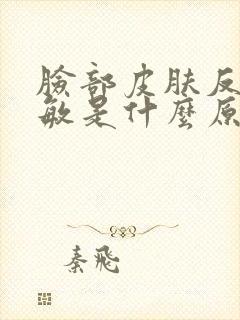 臉部皮肤反
敏是什麼原
秦飛